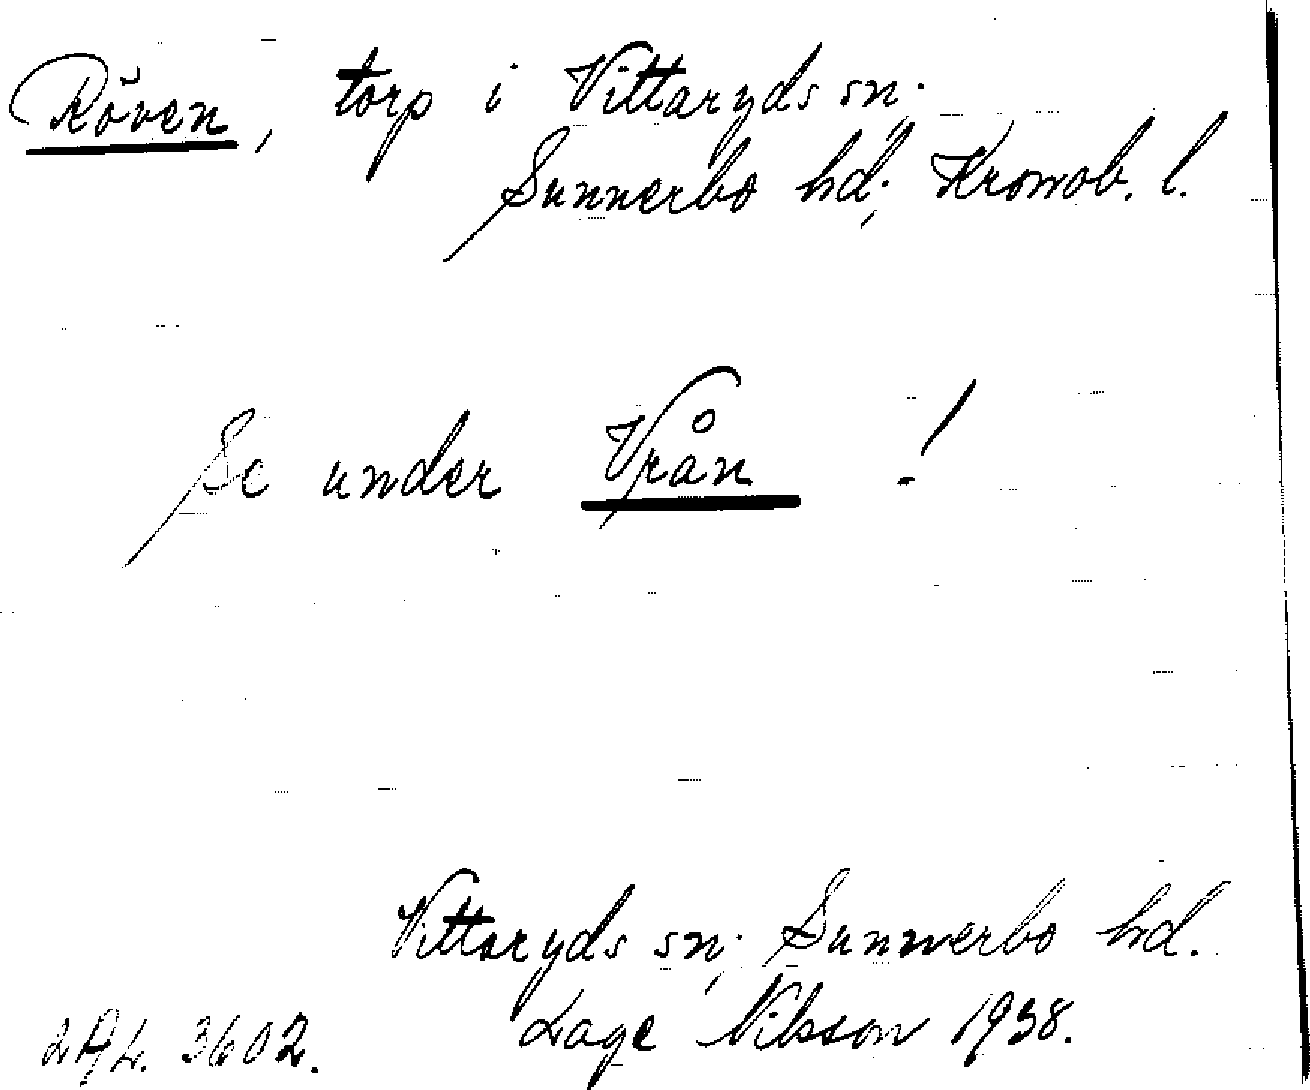 Röven, torp i Vittaryds sn.
Sunnerbo hd., Kronob. l.
Se under Vrån !
Vittaryds sn., Sunnerbo hd.
Lage Nilsson 1938.
3602.